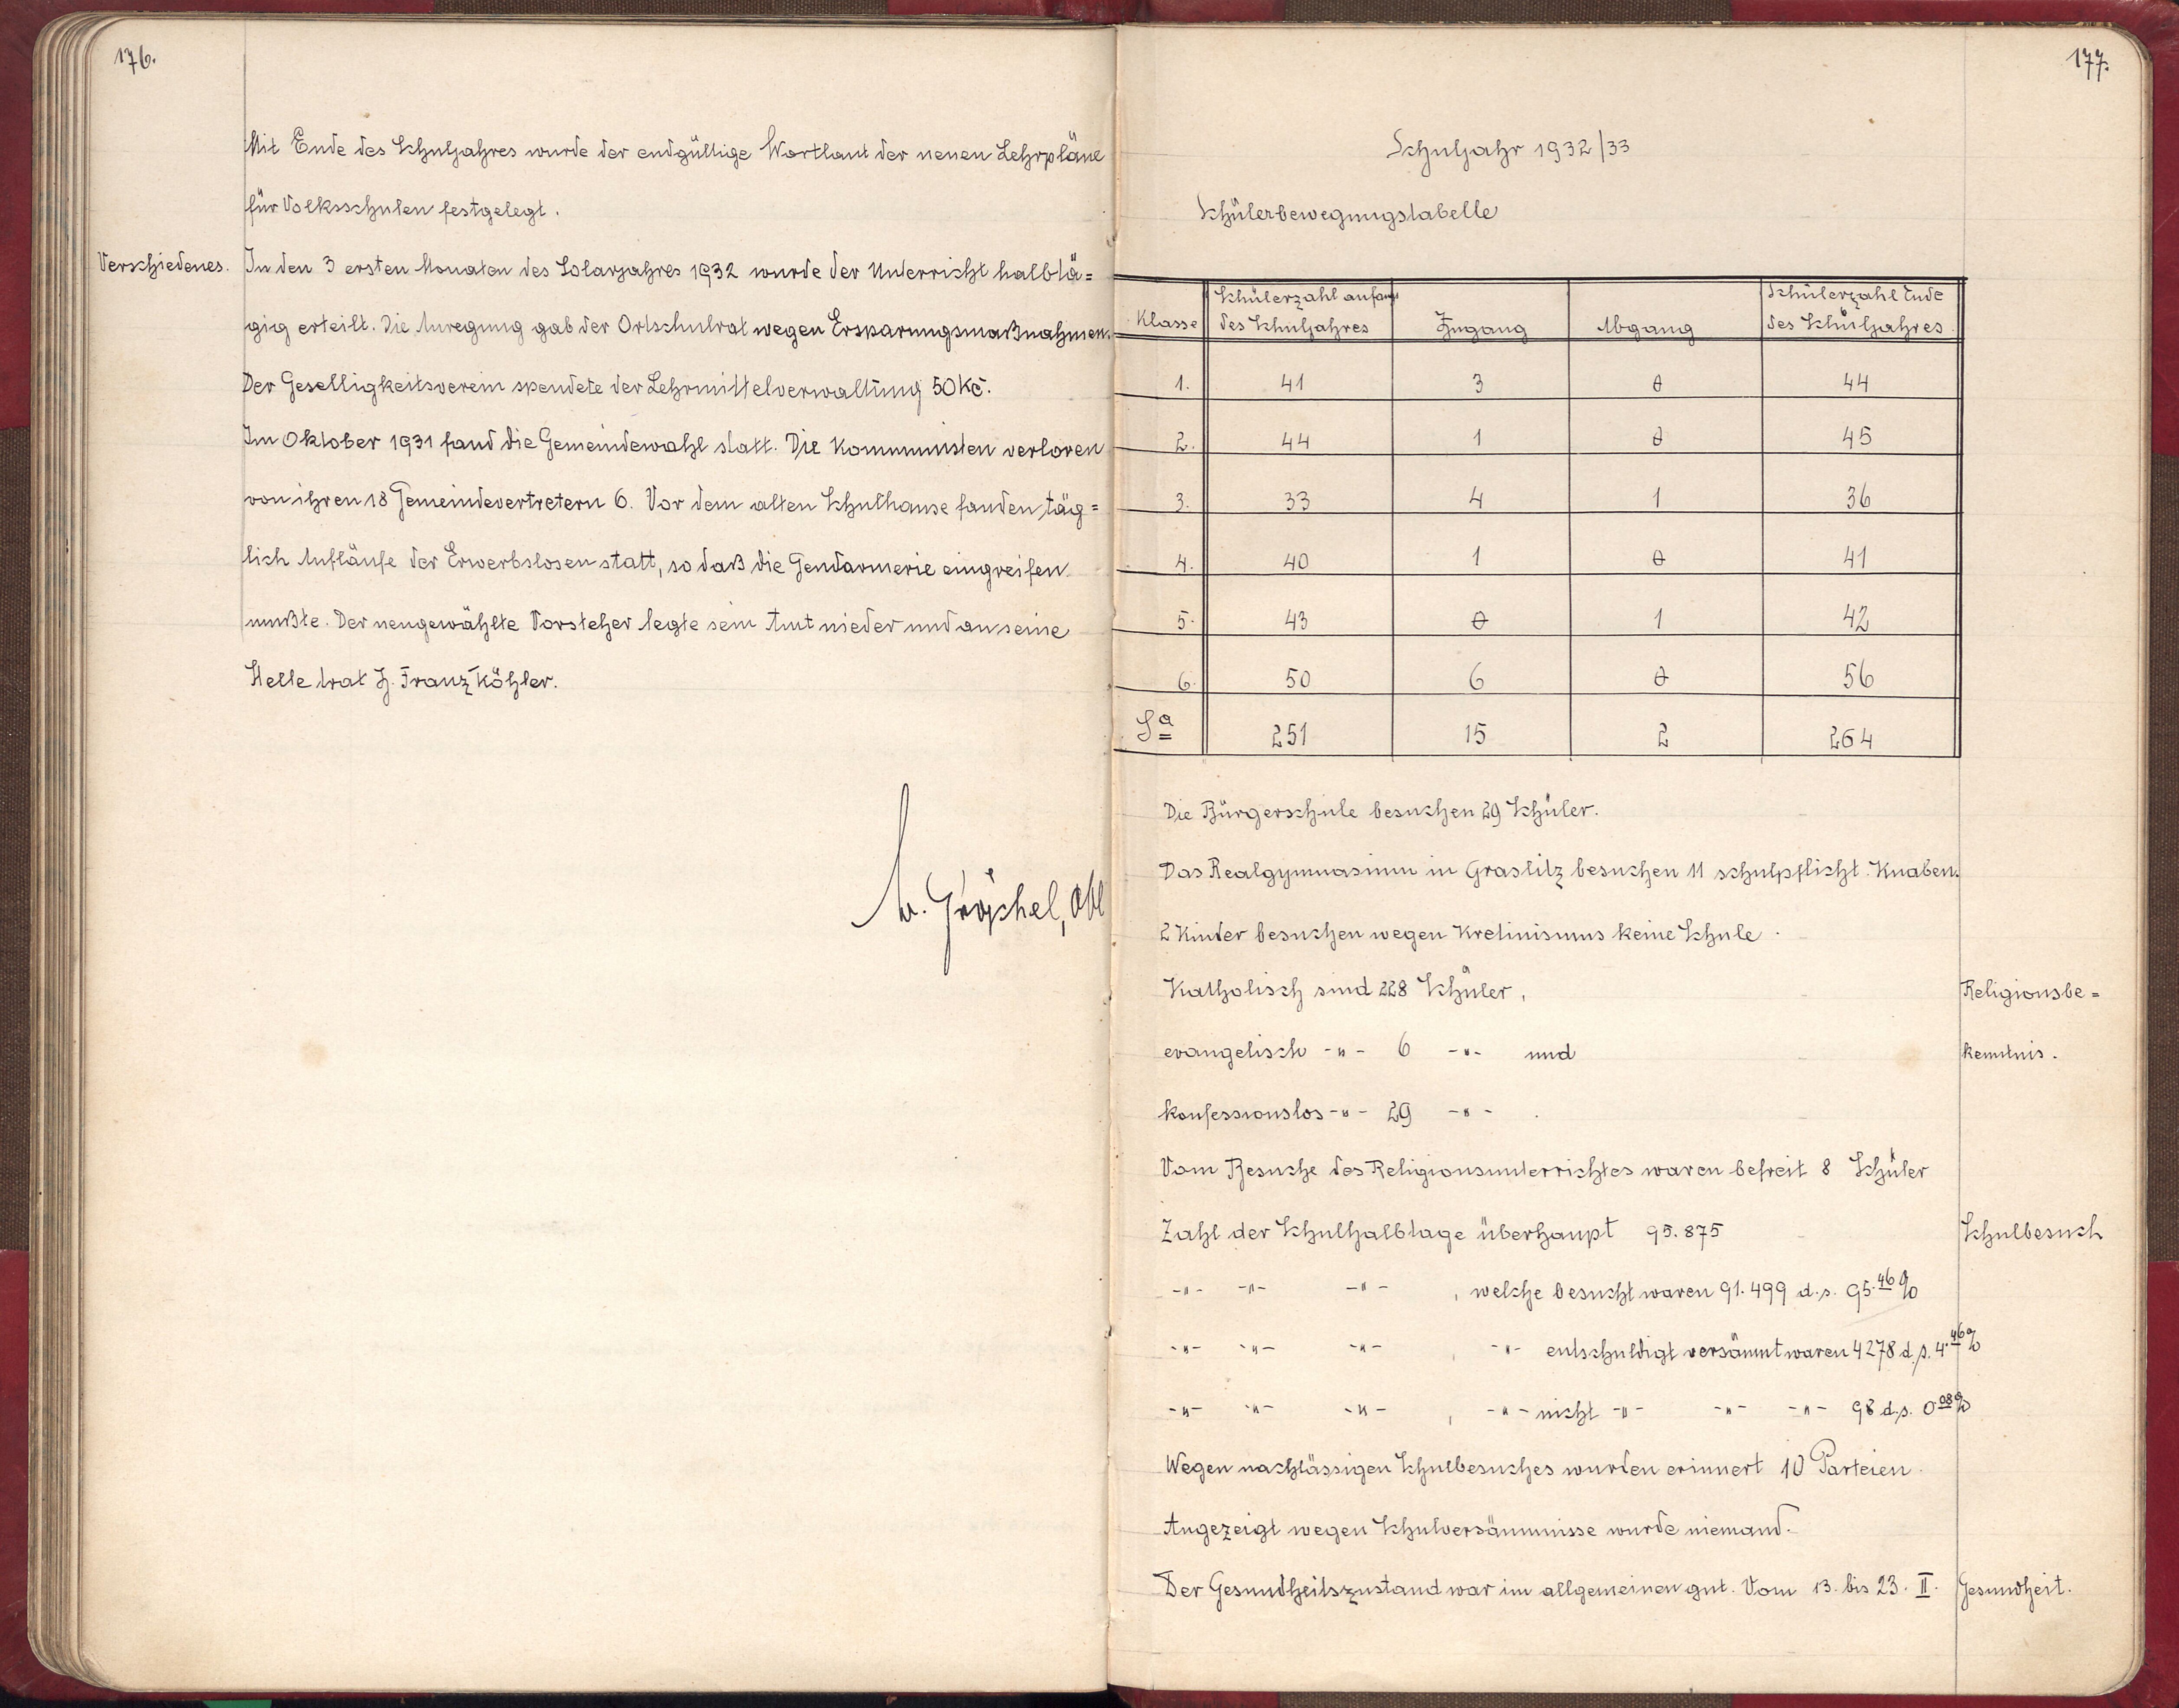 176.
Mit Ende des Schuljahres wurde der endgültige Wortlaut der neuen Lehrpläne
für Volksschulen festgelegt.
Verschiedenes. In den 3 ersten Monaten des Solarjahres 1932 wurde der Unterricht halbtä=
gig erteilt. Die Anregung gab der Ortschulrat wegen Ersparungsmaßnahmen.
Der Geselligkeitsverein spendete der Lehrmittelverwaltung 50 Kč.
Im Oktober 1931 fand die Gemeindewahl statt. Die Kommunisten verloren
von ihren 18 Gemeindevertretern 6. Vor dem alten Schulhause fanden täg=
lich Aufläufe der Erwerbslosen statt, so daß die Gendarmerie eingreifen
mußte. Der neugewählte Vorsteher legte sein Amt nieder und an seine
Stelle trat H. Franz Köhler.
177.
Schuljahr 1932/33
Schülerbewegungstabelle
Klasse Schülerzahl anfangs des Schuljahres Zugang Abgang Schülerzahl Ende des Schuljahres
1. 41 3 0 44
2. 44 1 0 45
3. 33 4 1 36
4. 40 1 0 41
5. 43 0 1 42
6. 50 6 0 56
Sa 251 15 2 264
Die Bürgerschule besuchen 29 Schüler.
Das Realgymnasium in Graslitz besuchen 11 schulpflicht. Knaben.
2 Kinder besuchen wegen Kretinismus keine Schule.
Katholisch sind 228 Schüler, Religionsbe=
evangelisch -"- 6 -"- und kenntnis.
konfessionslos -"- 29 -"- .
Vom Besuche des Religionsunterrichtes waren befreit 8 Schüler
Zahl der Schulhalbtage überhaupt 95.875 Schulbesuch
-"- -"- -"- , welche besucht waren 91.499 d.s. 95.46%
-"- -"- -"- , -"- entschuldigt versäumt waren 4278 d.s. 4.46%
-"- -"- -"- , -"- nicht -"- -"- -"- 98 d.s. 0.08%
Wegen nachlässigen Schulbesuches wurden erinnert 10 Parteien.
Angezeigt wegen Schulversäumnisse wurde niemand.
Der Gesundheitszustand war im allgemeinen gut. Vom 13. bis 23. II. Gesundheit.